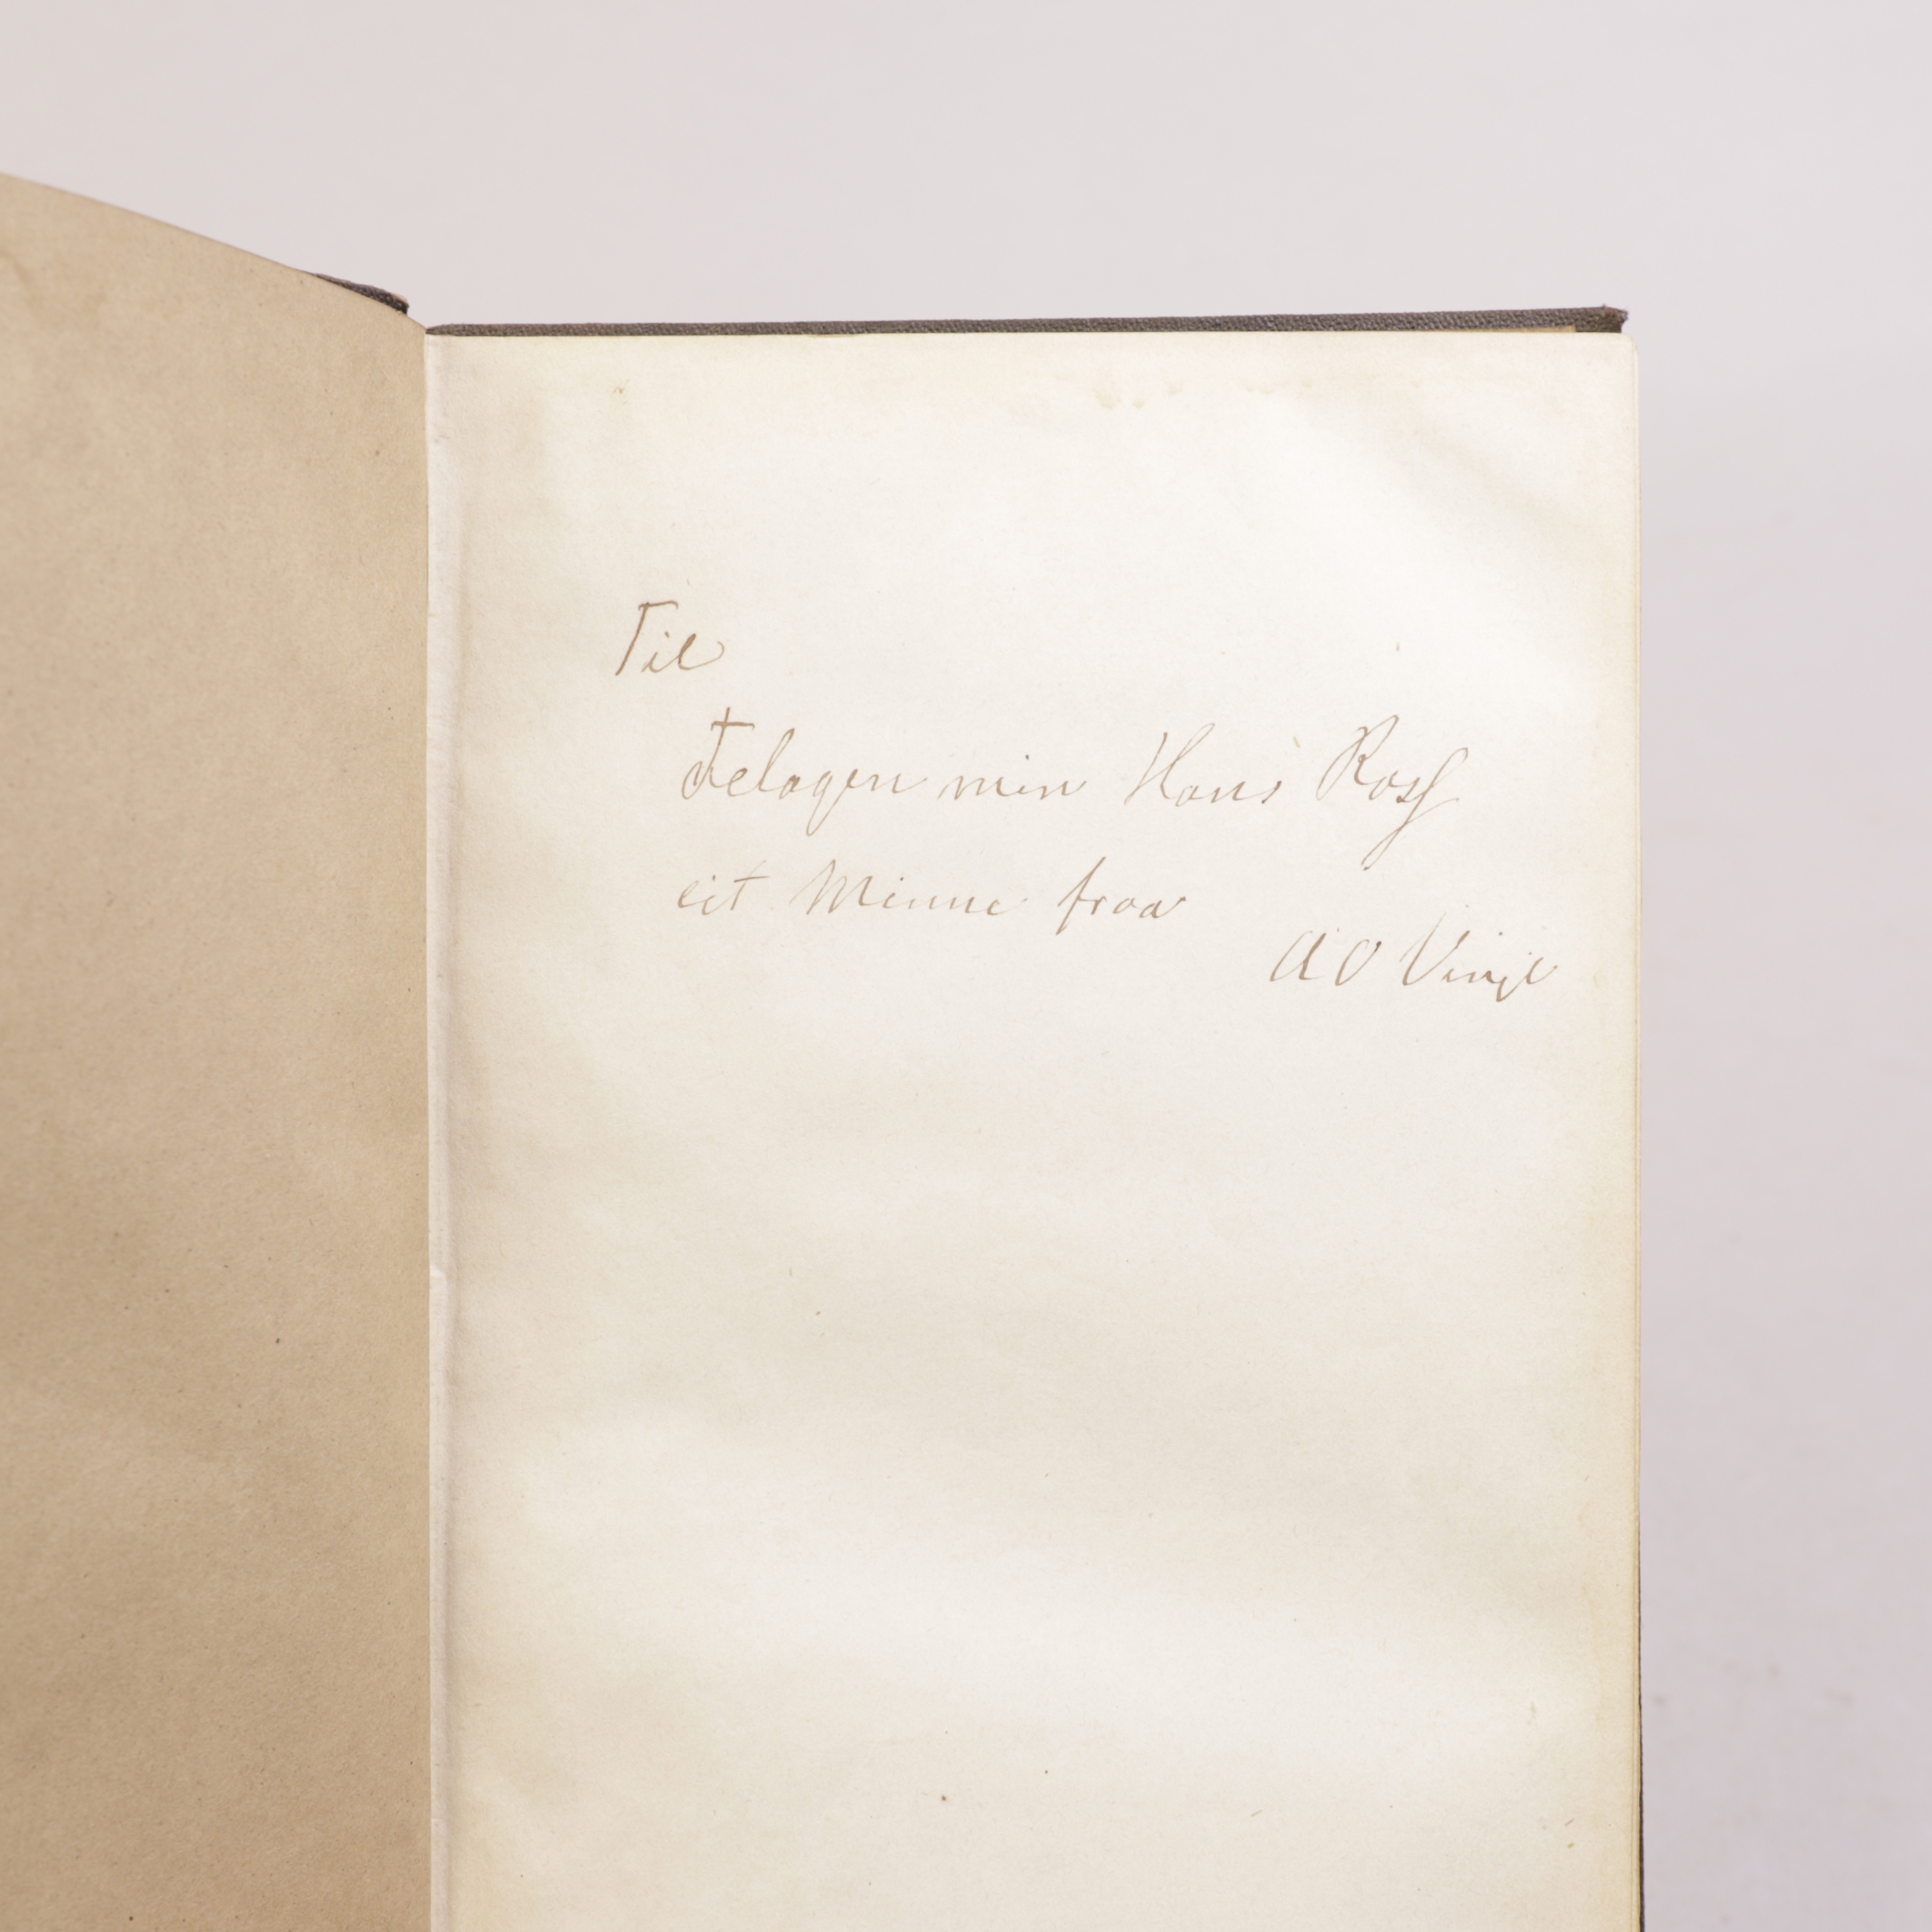 Til
Felagen min Hans Ross
eit Minne fraa
AO Vinje